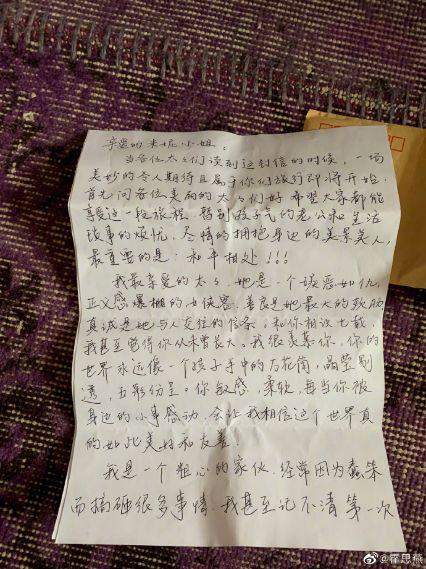 亲爱的米妮小姐：
当各位太太们读到这封信的时候，一场
美妙的令人期待且属于你们旅行即将开始，
首先问各位美丽的太太们好 希望大家都能
享受这一段旅程，暂别孩子气的老公和生活
琐事的烦忧，尽情的拥抱身边的美景美人，
最重要的是：和平相处！！！
我最亲爱的太太，她是一个嫉恶如仇，
正义感爆棚的女侠客，善良是她最大的软肋
真诚是她与人交往的信条。和你相识七载，
我甚至觉得你从未曾长大。我很羡慕你，你的
世界永远像一个孩子手中的万花筒，晶莹剔
透，五彩纷呈。你敏感，柔软，每当你被
身边的小事感动，会让我相信这个世界真
的如此美好和友善！
我是一个粗心的家伙，经常因为蠢笨
而搞砸很多事情，我甚至记不清第一次
@霍思燕